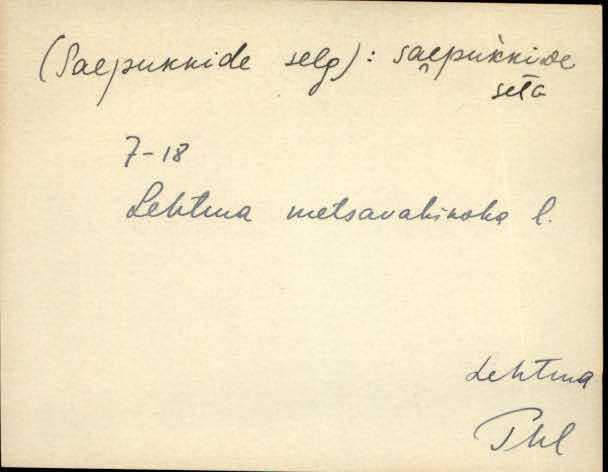 (Saepukkide selg): sae̬pùkkide
seĺa
7-18
Lehtma metsavahikoha l.
Lehtma
Phl